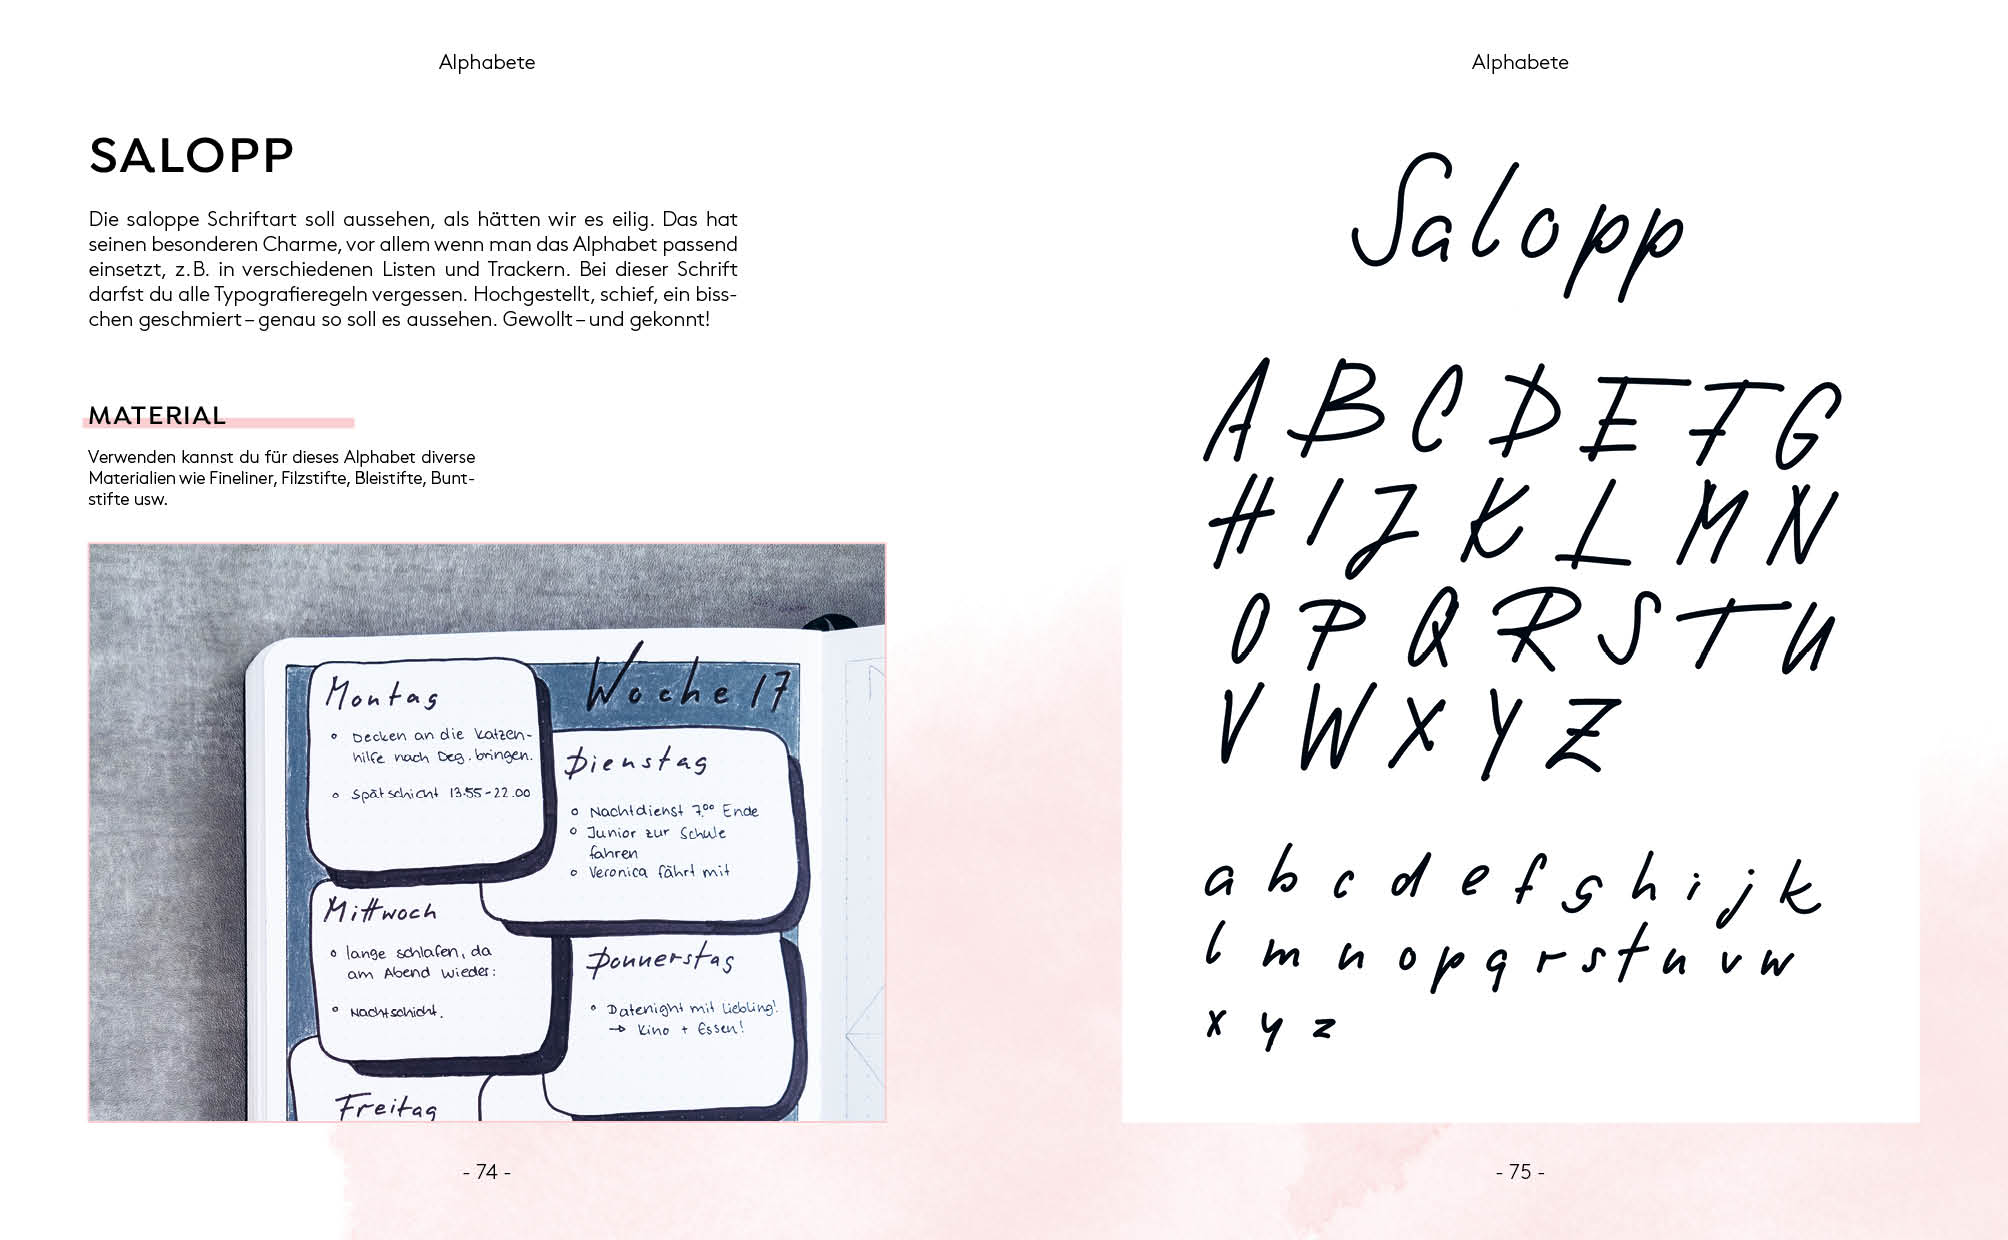 Alphabete
SALOPP
Die saloppe Schriftart soll aussehen, als hätten wir es eilig. Das hat
seinen besonderen Charme, vor allem wenn man das Alphabet passend
einsetzt, z.B. in verschiedenen Listen und Trackern. Bei dieser Schrift
darfst du alle Typografieregeln vergessen. Hochgestellt, schief, ein biss-
chen geschmiert – genau so soll es aussehen. Gewollt – und gekonnt!
MATERIAL
Verwenden kannst du für dieses Alphabet diverse
Materialien wie Fineliner, Filzstifte, Bleistifte, Bunt-
stifte usw.
Woche 17
Montag
Decken an die Katzen-
hilfe nach Deg. bringen.
Spätschicht 13.55-22.00
Dienstag
Nachtdienst 7.00 Ende
Junior zur Schule
fahren
Veronica fährt mit
Mittwoch
lange schlafen, da
am Abend wieder:
Nachtschicht.
Donnerstag
Datenight mit Liebling!
→ Kino + Essen!
Freitag
- 74 -
Alphabete
Salopp
A B C D E F G
H I J K L M N
O P Q R S T U
V W X Y Z
a b c d e f g h i j k
l m n o p q r s t u v w
x y z
- 75 -